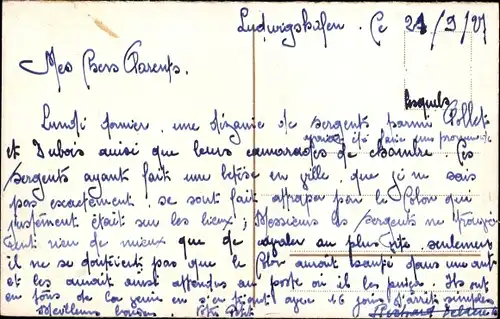 Ludwigshafen. Ce 21/9/27
Mes Chers Parents.
lesquels
Lundi dernier, une dizaine de sergents parmi Pollet
avaient été faire une promenade
et Dubois ainsi que leurs camarades de chambre Ces
sergents ayant fait une bêtise en ville, que je ne sais
pas exactement se sont fait attraper par le Colon qui
justement était sur les lieux; Messieurs les sergents ne trouvè-
rent rien de mieux que de cavaler au plus vite seulement
il ne se doutaient pas que le Colon aurait sauté dans une auto
et les aurait ainsi attendus au poste où il les pinça. Ils ont
en tous de la genie en s'en tirant avec 16 jours d'arrêt simples
Meilleurs baisers. Petit